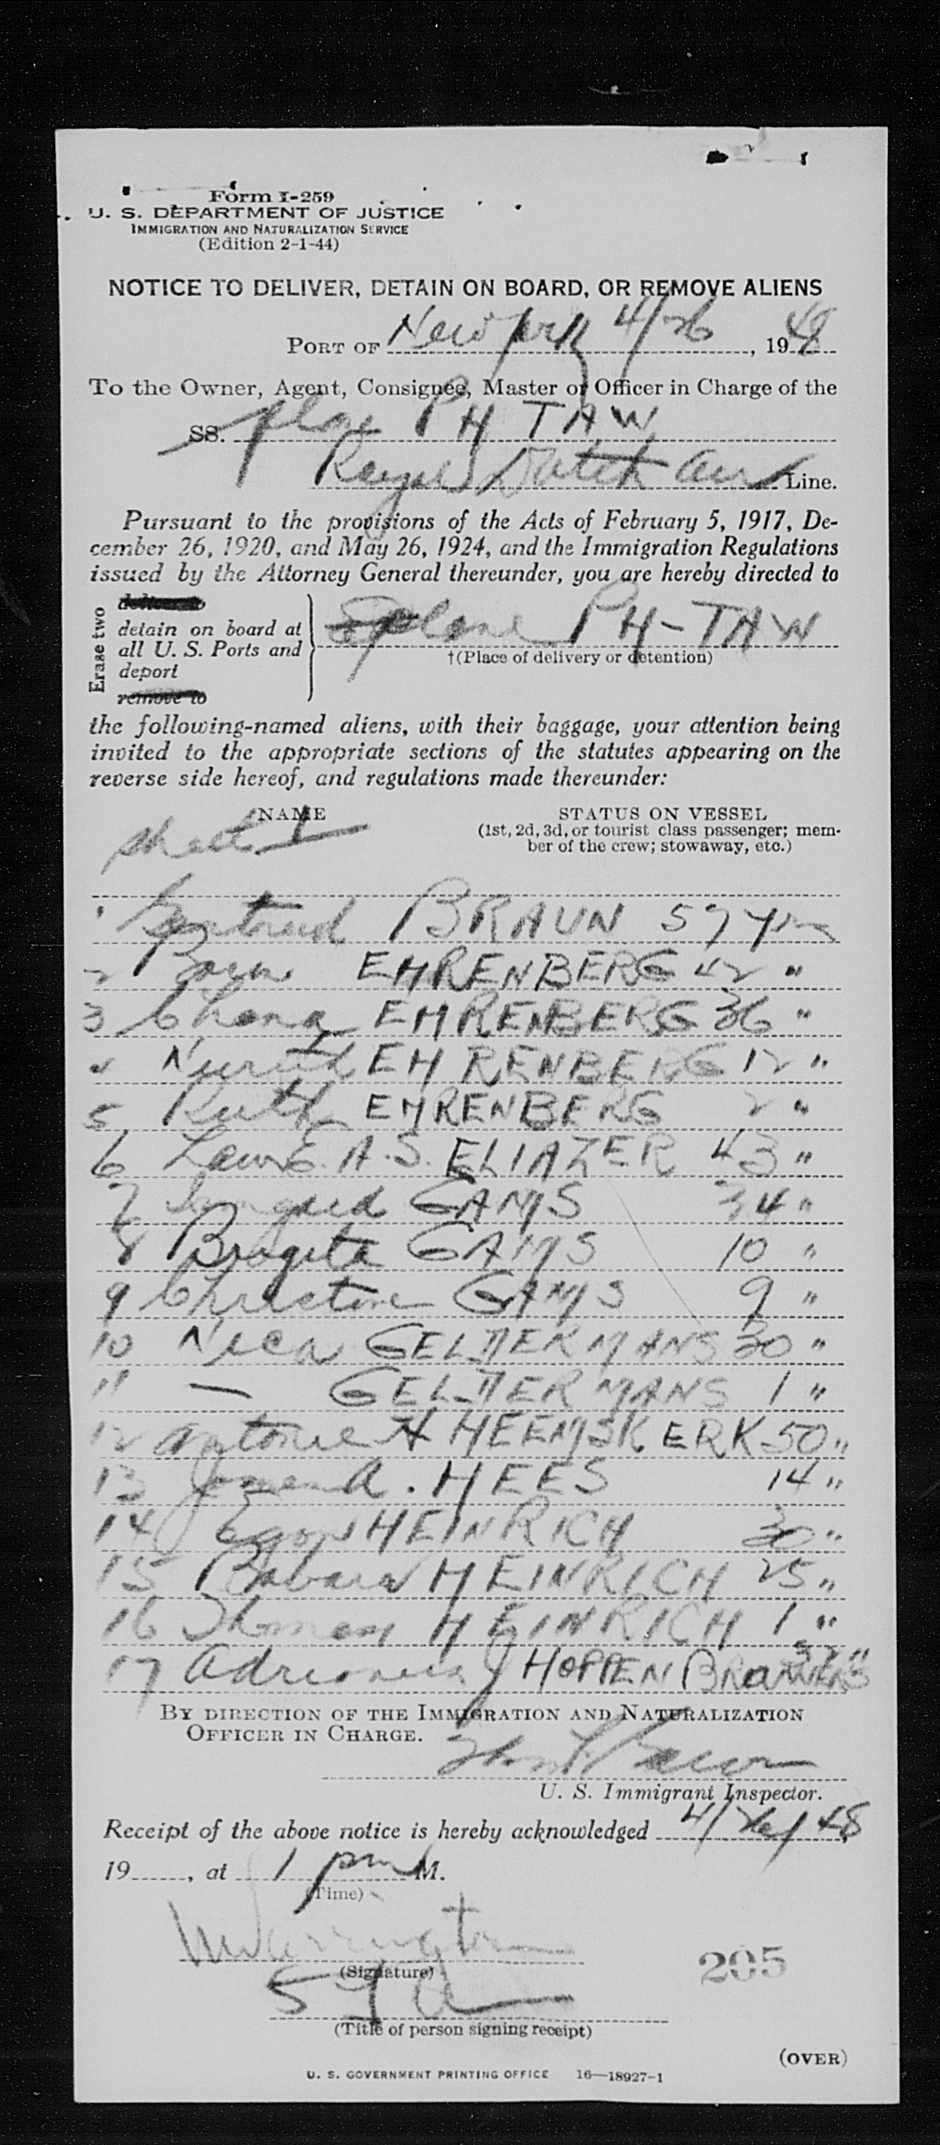 Form I-259
U. S. DEPARTMENT OF JUSTICE
IMMIGRATION AND NATURALIZATION SERVICE
(Edition 2-1-44)
NOTICE TO DELIVER, DETAIN ON BOARD, OR REMOVE ALIENS
PORT OF New York 4/26, 1948
To the Owner, Agent, Consignee, Master or Officer in Charge of the
SS. plane PH TAW
Royal Dutch Air Line.
Pursuant to the provisions of the Acts of February 5, 1917, De-
cember 26, 1920, and May 26, 1924, and the Immigration Regulations
issued by the Attorney General thereunder, you are hereby directed to
Erase two
deliver to
detain on board at
all U. S. Ports and
deport
remove to
plane PH-TAW
†(Place of delivery or detention)
the following-named aliens, with their baggage, your attention being
invited to the appropriate sections of the statutes appearing on the
reverse side hereof, and regulations made thereunder:
NAME STATUS ON VESSEL
(1st, 2d, 3d, or tourist class passenger; mem-
ber of the crew; stowaway, etc.)
sheet 1
1 Gertrud BRAUN 57 yrs
2 EHRENBERG 42 "
3 Chana EHRENBERG 36 "
4 Nurith EHRENBERG 12 "
5 Ruth EHRENBERG 2 "
6 A. S. ELIAZER 43 "
7 GAMS 34 "
8 Brigita GAMS 10 "
9 Christine GAMS 9 "
10 GELDERMANS 30 "
11 — GELDERMANS 1 "
12 Antonie H HEEMSKERK 50 "
13 A. HEES 14 "
14 Egon HEINRICH 30 "
15 Barbara HEINRICH 25 "
16 Thomas HEINRICH 1 "
17 J HOPPENBROUWERS "
BY DIRECTION OF THE IMMIGRATION AND NATURALIZATION
OFFICER IN CHARGE.
U. S. Immigrant Inspector.
Receipt of the above notice is hereby acknowledged 4/26/48
19......, at 1 pm M.
(Time)
(Signature)
205
(Title of person signing receipt)
(OVER)
U. S. GOVERNMENT PRINTING OFFICE 16—18927-1